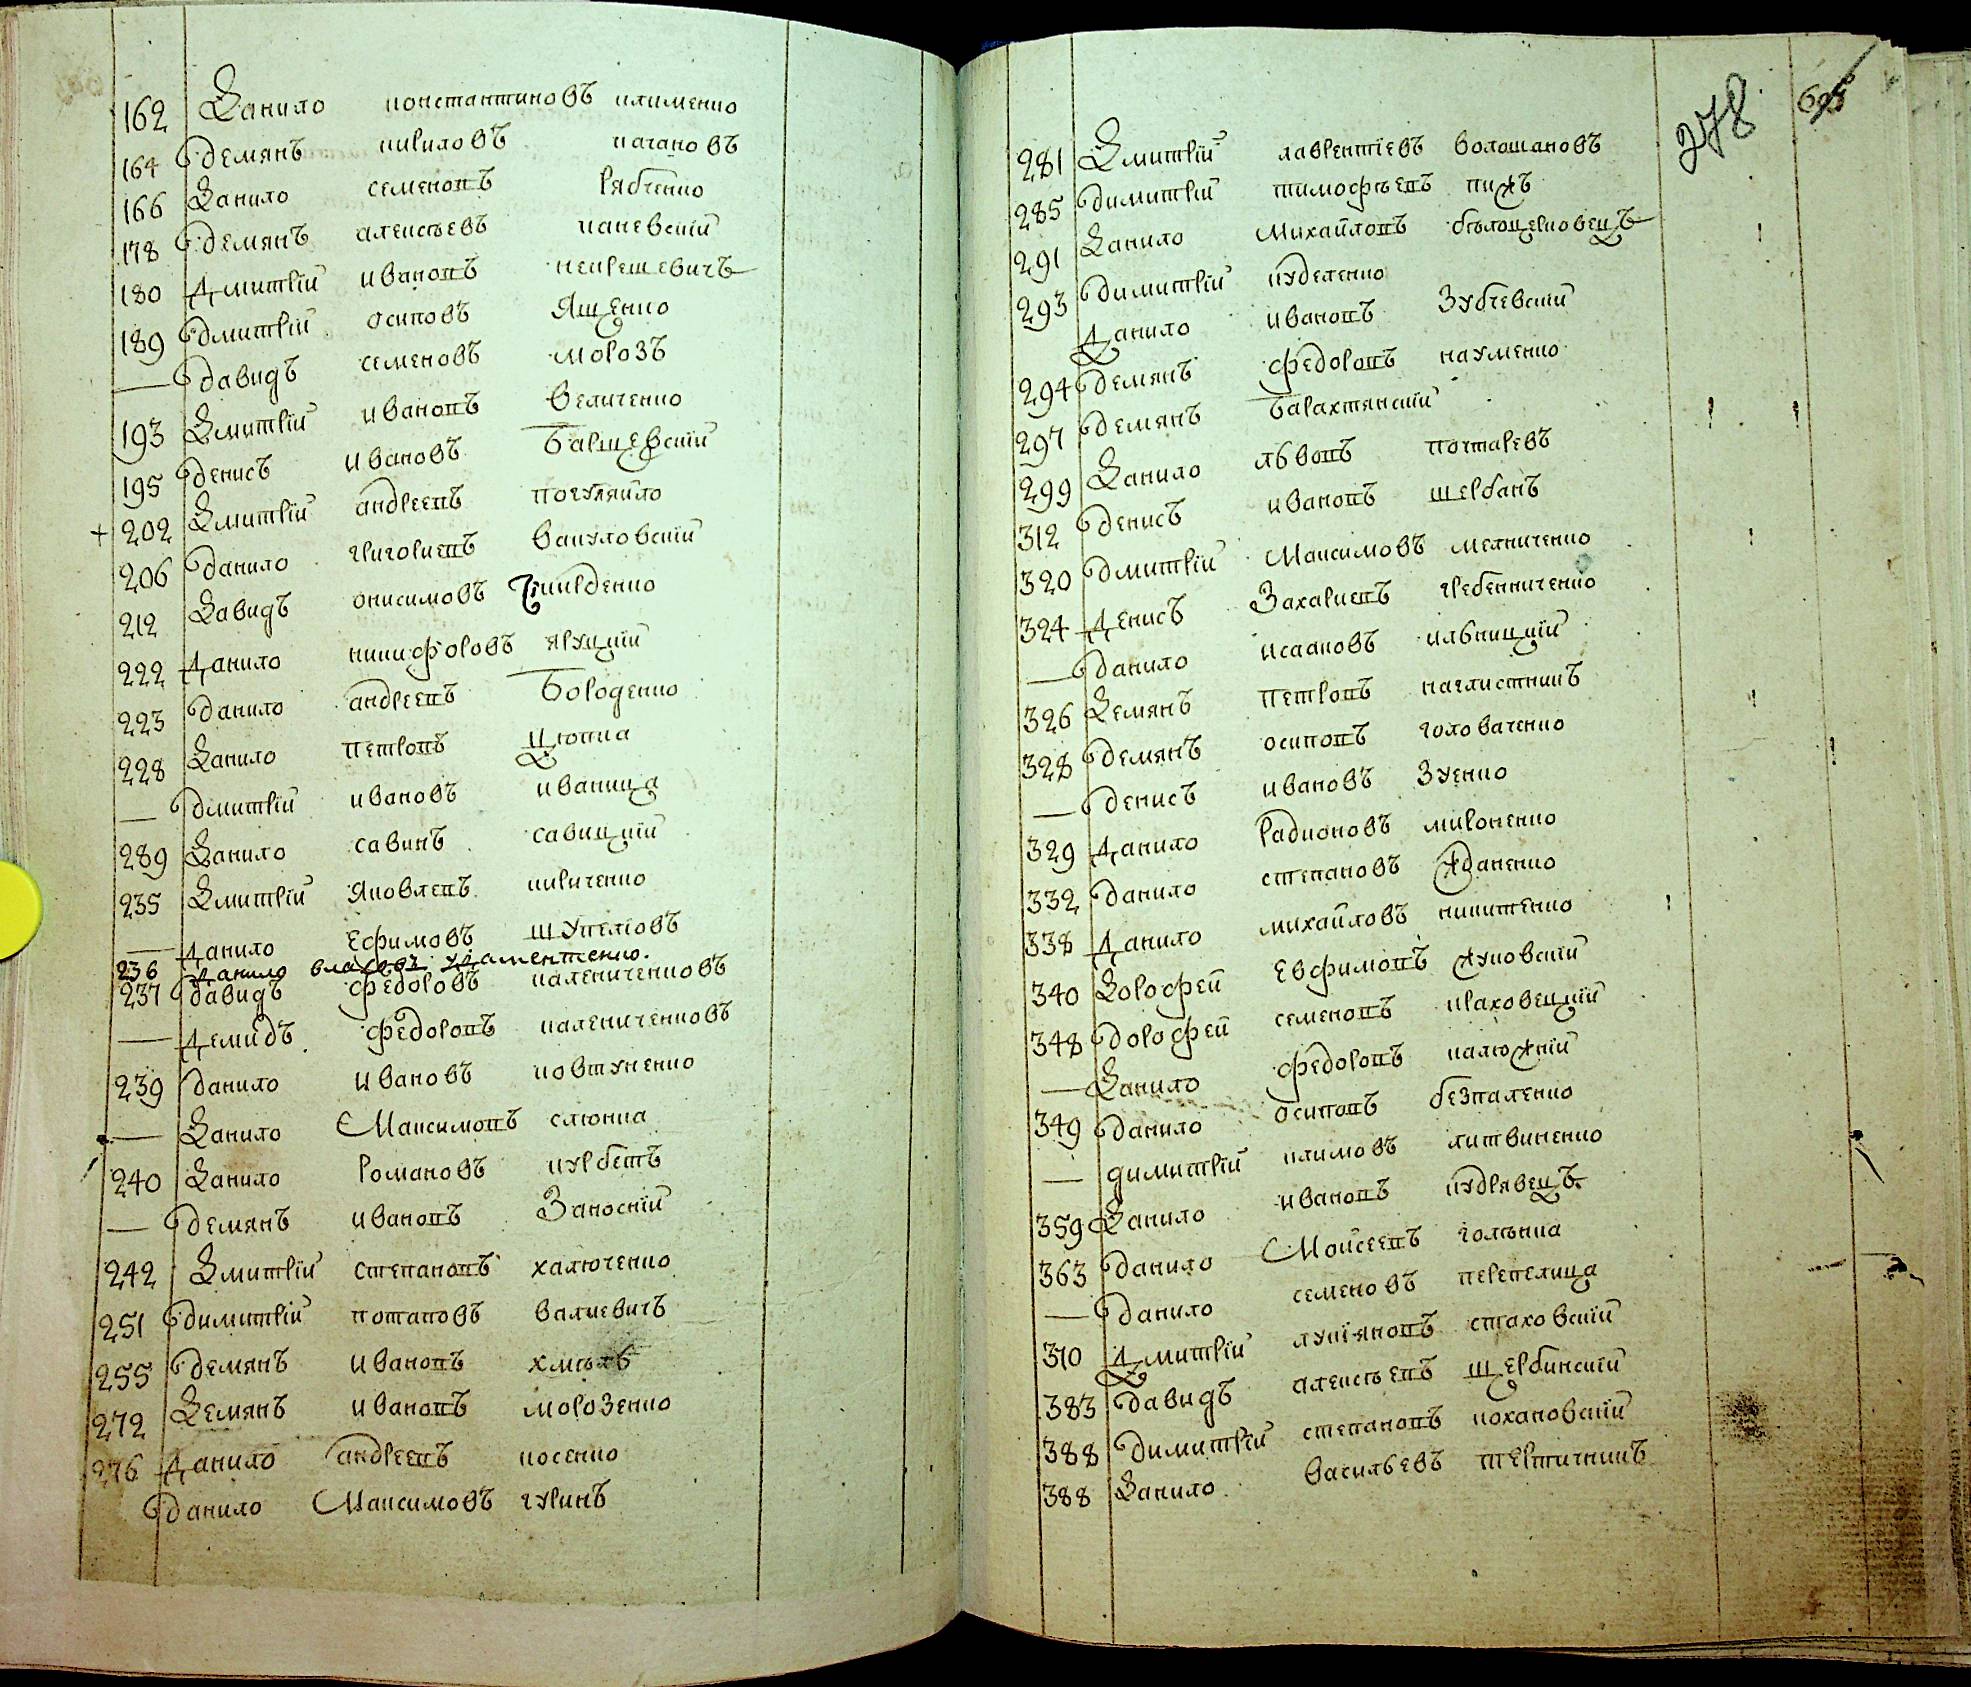 162 Данило константиновъ клименко
164 демянъ кириловъ качановъ
166 Данило семеновъ Рябченко
178 демянъ алексѣевъ каневскій
180 Дмитрій ивановъ некрешевичъ
189 дмитрій осиповъ Ященко
— давидъ семеновъ морозъ
193 Дмитрій ивановъ величенко
195 денисъ ивановъ Барщевскій
+ 202 Дмитрій андреевъ погуляйло
206 данило григориевъ вакуловскій
212 Давидъ онисимовъ
222 Данило никифоровъ яруцкій
223 данило андреевъ Бороденко
228 Данило петровъ Цюпка
— дмитрій ивановъ иваница
289 Данило савинъ савицкій
235 Дмитрій Яковлевъ кириченко
— Данило Ефимовъ
236 Данило власовъ
237 давидъ федоровъ каленичеиковъ
— Демидъ федоровъ каленичениовъ
239 данило ивановъ ковтуненко
— Данило Максимовъ слюнка
240 Данило Романовъ курбетъ
— демянъ ивановъ Заноскій
242 Дмитрій степановъ халюченко
251 димитрій потаповъ валкевичъ
255 демянъ ивановъ хмѣль
272 Демянъ ивановъ морозенко
276 Данило андреевъ косенко
данило Максимовъ гуринъ
278
281 Дмитрій лаврентіевъ волошановъ
285 димитрій тимофѣевъ пижъ
291 Данило Михайловъ бѣлоцерковецъ
293 димитрій куделенко
Данило ивановъ Зубчевскій
294 демянъ федоровъ науменко
297 демянъ Барахтянскій
299 Данило львовъ почтаревъ
312 денисъ ивановъ щербанъ
320 дмитрій Максимовъ мелниченко
324 Денисъ Захариевъ гребенниченко
— данило исааковъ илницкій
326 Демянъ Петровъ нагли́стникъ
328 демянъ осиповъ головаченко
— денисъ ивановъ Зуенко
329 Данило Радионовъ мироненко
332 данило степановъ Жданенко
338 Данило михайловъ никитенко
340 Дорофей Евфимовъ жуковскій
348 дорофей семеновъ краховецкій
— Данило федоровъ калюжній
349 данило осиповъ безпаленко
— димитрій климовъ литвиненко
359 Данило ивановъ кудрявецъ
363 данило Мойсеевъ голѣнка
— данило семеновъ перепелица
310 Дмитрій лукіяновъ стаховскій
383 давидъ алексѣевъ щербинскій
388 димитрій степановъ кохановскій
388 Данило васильевъ тертичникъ